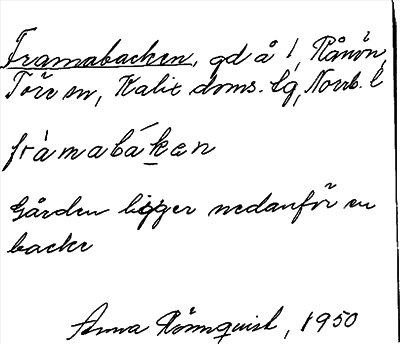 Framabacken, gd å 1, Rånön,
Töre sn, Kalix doms. lg, Norrb. l
fràmabákæn
Gården ligger nedanför en
backe
Anna Rönnquist, 1950